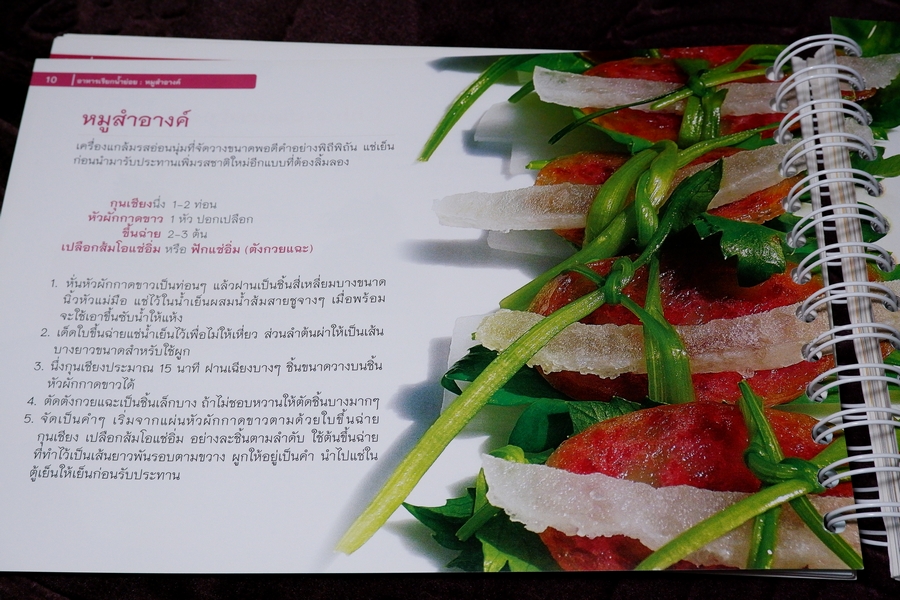 10 อาหารเรียกน้ำย่อย : หมูสำอางค์
หมูสำอางค์
เครื่องแกล้มรสอ่อนนุ่มที่จัดวางขนาดพอดีคำอย่างพิถีพิถัน แช่เย็น
ก่อนนำมารับประทานเพิ่มรสชาติใหม่อีกแบบที่ต้องลิ้มลอง
กุนเชียงนึ่ง 1-2 ท่อน
หัวผักกาดขาว 1 หัว ปอกเปลือก
ขึ้นฉ่าย 2-3 ต้น
เปลือกส้มโอแช่อิ่ม หรือ ฟักแช่อิ่ม (ตังกวยแฉะ)
1. หั่นหัวผักกาดขาวเป็นท่อนๆ แล้วฝานเป็นชิ้นสี่เหลี่ยมบางขนาด
นิ้วหัวแม่มือ แช่ไว้ในน้ำเย็นผสมน้ำส้มสายชูจางๆ เมื่อพร้อม
จะใช้เอาขึ้นซับน้ำให้แห้ง
2. เด็ดใบขึ้นฉ่ายแช่น้ำเย็นไว้เพื่อไม่ให้เหี่ยว ส่วนลำต้นผ่าให้เป็นเส้น
บางยาวขนาดสำหรับใช้ผูก
3. นึ่งกุนเชียงประมาณ 15 นาที ฝานเฉียงบางๆ ชิ้นขนาดวางบนชิ้น
หัวผักกาดขาวได้
4. ตัดตังกวยแฉะเป็นชิ้นเล็กบาง ถ้าไม่ชอบหวานให้ตัดชิ้นบางมากๆ
5. จัดเป็นคำๆ เริ่มจากแผ่นหัวผักกาดขาวตามด้วยใบขึ้นฉ่าย
กุนเชียง เปลือกส้มโอแช่อิ่ม อย่างละชิ้นตามลำดับ ใช้ต้นขึ้นฉ่าย
ที่ทำไว้เป็นเส้นยาวพันรอบตามขวาง ผูกให้อยู่เป็นคำ นำไปแช่ใน
ตู้เย็นให้เย็นก่อนรับประทาน